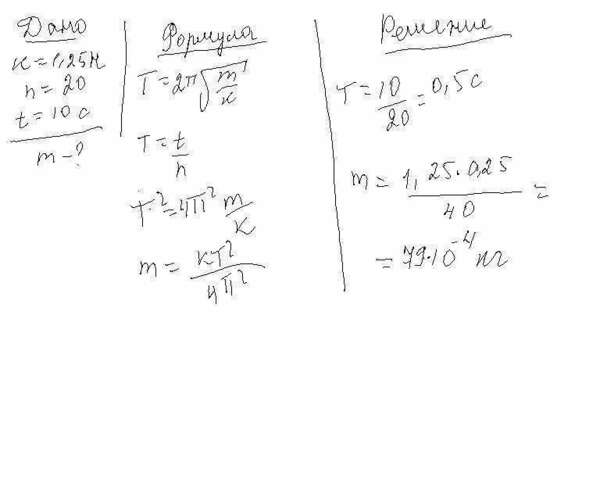 Дано
к = 1,25Н
n = 20
t = 10 с
m - ?
Формула
T = 2π√m/к
T = t/n
T² = 4π² m/к
m = кT²/4π²
Решение
T = 10/20 = 0,5с
m = 1,25·0,25/40 =
= 79·10⁻⁴ кг